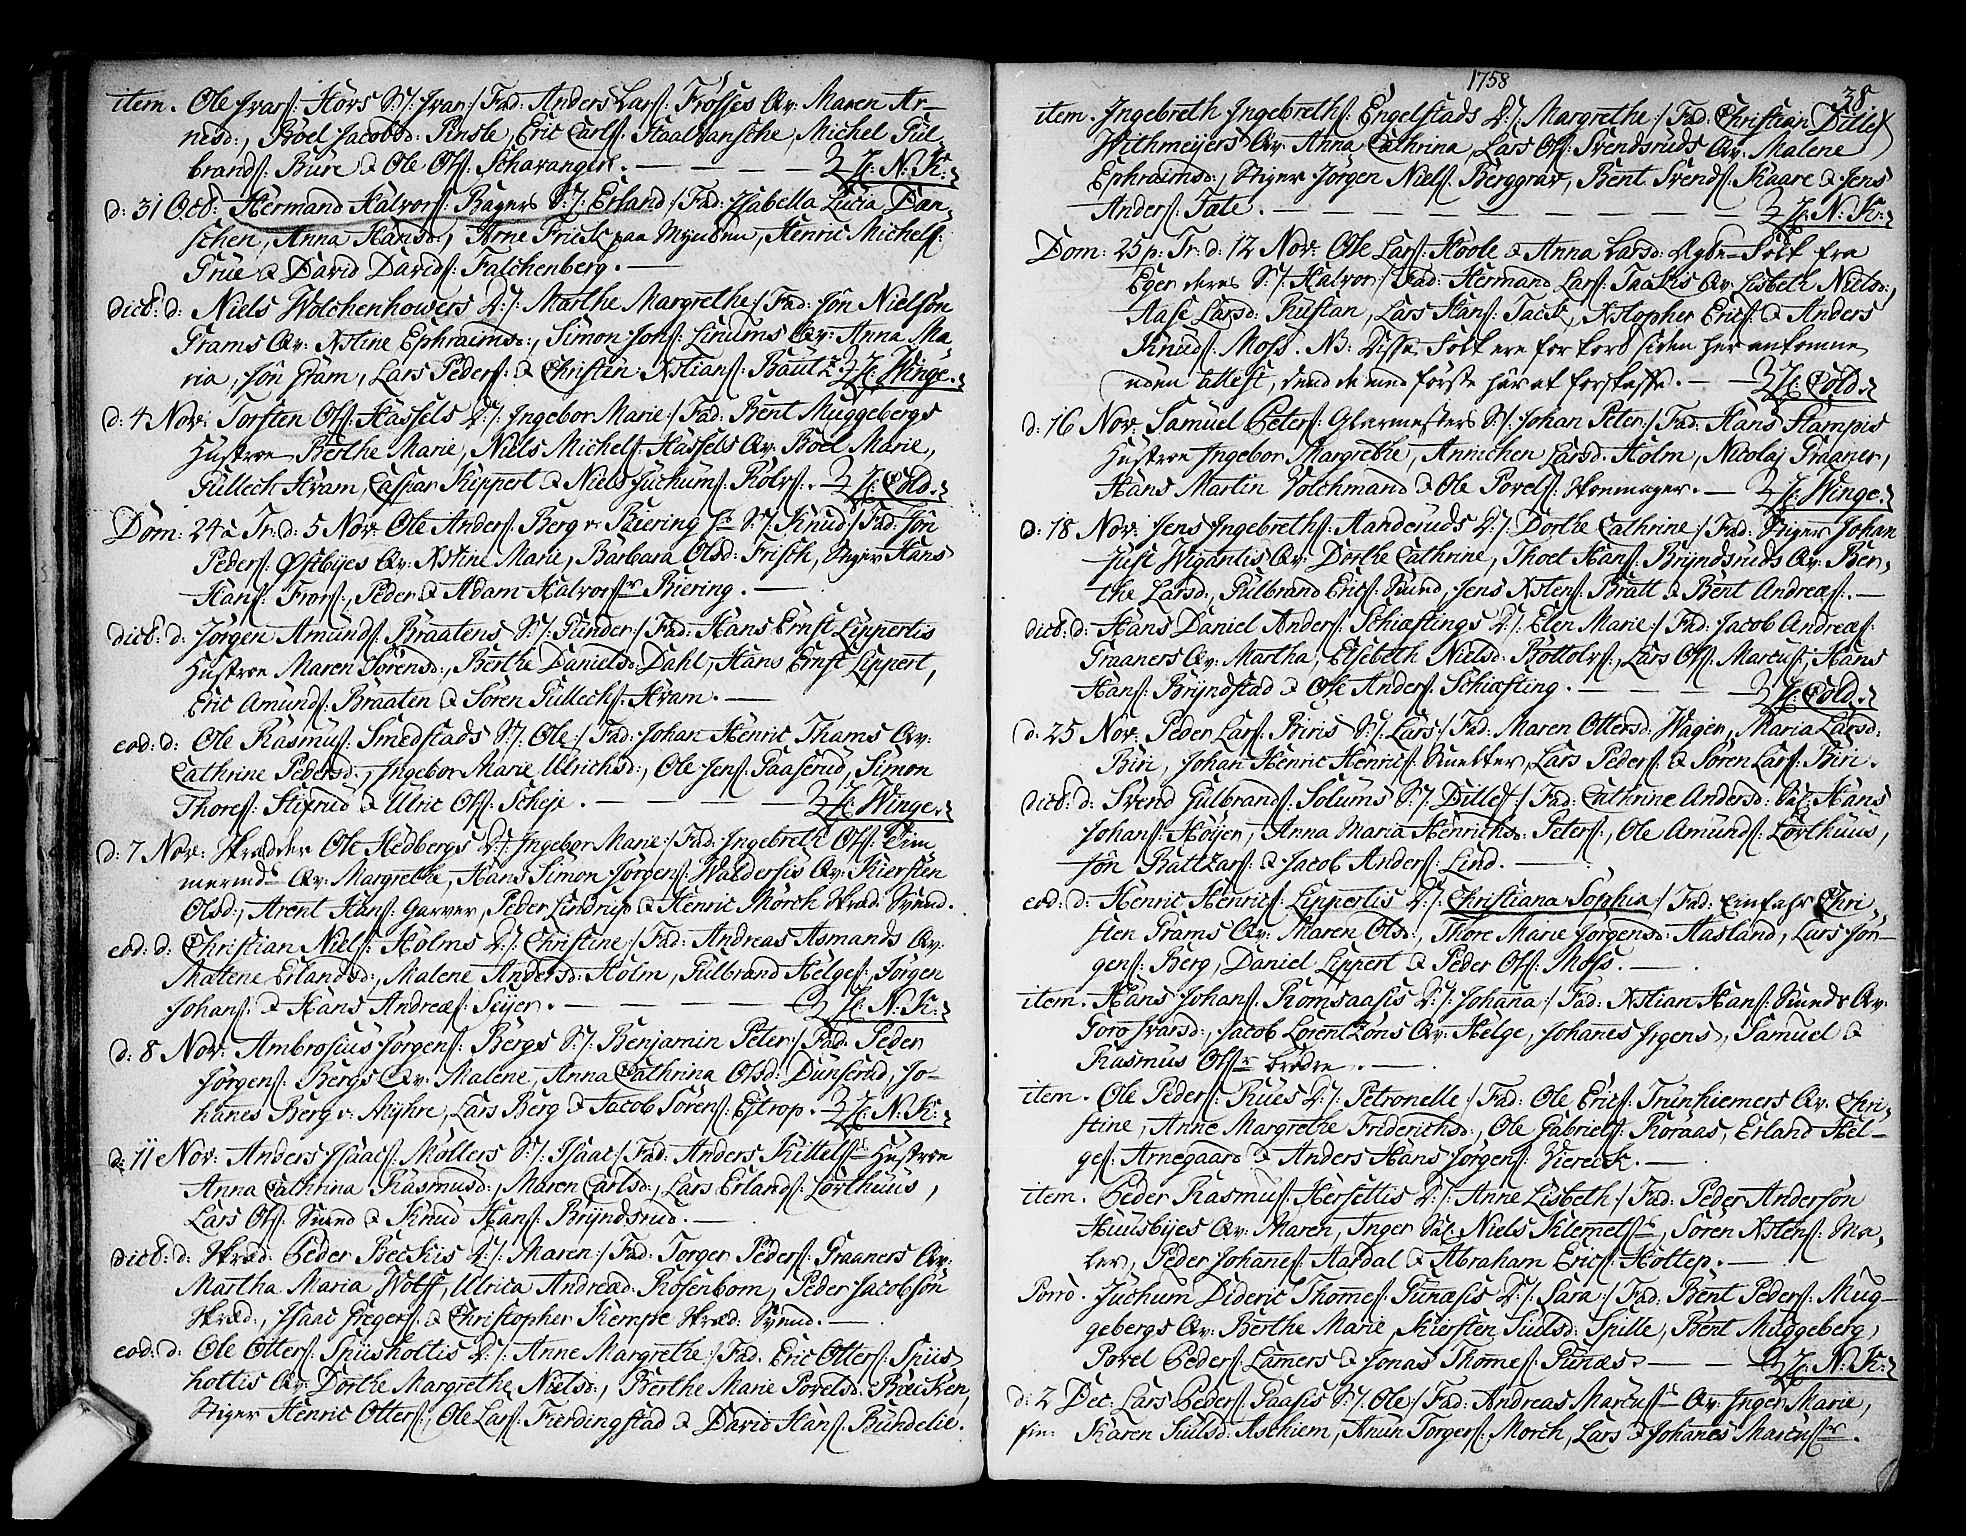 item. Ole Ivars: Hörs S:/: Ivar:/ Fad: Anders Lars: Frösses Qv: Maren Ar-
nesd:, Boel Jacobsd: Pinsle, Eric Carls: Staalhansche, Michel Gul
brands: Bure & Ole Ols: Schavangen. — — — — H: N: K:
d: 31 Octb: Hermand Halvors: Bagers S:/: Erland:/ Fad: Isabella Lucia Dan-
schen, Anna Hansd:, Arne Frick paa Mynden, Henric Michels:
Grüe & David Davids: Falchenberg. —
dict: d: Niels Wolchenhowers D:/: Marthe Margrethe:/ Fad: Jön Nielsön
Grams Qv: Xstine Ephraimsd:, Simon Jons: Linums Qv: Anna Ma
ria, Jön Gram, Lars Peders: & Christen Xstians: Bautz H: Winge.
d: 4 Nov: Torsten Ols: Hassels D:/: Ingebor Marie:/ Fad: Bent Muggebergs
Hustroe Berthe Marie, Niels Michels: Hassels Qv: Boel Marie,
Gullech Kram, Caspar Kippert & Niels Juchums: Rolvs:. — H: Cold.
Dom: 24 a Tr: d: 5 Nov: Ole Anders: Berg v: Bæring S:/: Knud:/ Fad: Jön
Peders: Østbyes Qv: Xstine Marie, Barbara Olsd: Frisch, Stiger Hans
Hans: Frors:, Peder & Adam Halvors: Biering. —
dict: d: Jörgen Amunds: Braatens S:/: Gunder:/ Fad: Hans Ernst Lippertis
Hustroe Maren Sörensd:, Berthe Danielsd: Dahl, Hans Ernst Lippert,
Eric Amunds: Braaten & Sören Gullechs: Kram. —
eod: d: Ole Rasmus: Smedstads S:/: Ole:/ Fad: Johan Henric Thams Qv:
Cathrine Pedersd:, Ingebor Marie Ulrichsd:, Ole Jens: Gaaserud, Simon
Thores: Stixrud & Ulric Ols: Scheje. — — — — H: Winge.
d: 7 Nov: Skredder Ole Hedbergs D:/: Ingebor Marie:/ Fad: Ingebreth Ols: Tim
mermds Qv: Margrethe, Hans Simon Jörgens: Waldersis Qv: Kiersten
Olsd:, Arent Hans: Garver, Peder Lindrup & Henric Mörch Skræd: Svend.
eod: d: Christian Niels: Holms D:/: Christine:/ Fad: Andreas Asmands Qv:
Malene Erlandsd:, Malene Andersd: Holm, Gulbrand Helges:, Jörgen
Johans: & Hans Andreæs: Seyer. — — — — H: N: K:
d: 8 Nov: Ambrosius Jörgens: Bergs S:/: Benjamin Peter:/ Fad: Peder
Jörgens: Bergs Qv: Malene, Anna Cathrina Olsd: Dunserud, Jo-
hannes Berg v: Myhre, Lars Berg & Jacob Sörens: Estrop. H: N: K:
d: 11 Nov: Anders Isaacs: Möllers S:/: Isaac:/ Fad: Anders Kittels: Hustroe
Anna Cathrina Rasmusd:, Maren Carlsd:, Lars Erlands: Lorthuus,
Lars Ols: Svend & Knud Hans: Bryndsrud. —
dict: d: Skræd: Peder Beckis D:/: Maren:/ Fad: Torger Peders: Graaners Qv:
Martha Maria Wolff, Ulrica Andreæd: Rosenborn, Peder Jacobsön
Skræd:, Isaac Gregers: & Christopher Kempe Skræd: Svend. —
eod: d: Ole Otters: Spiisholtis D:/: Anne Margrethe:/ Fad: Eric Otters: Spiis
holtis Qv: Dorthe Margrethe Nielsd:, Berthe Marie Povelsd: Bæcken,
Stiger Henric Otters:, Ole Lars: Fierdingstad & David Hans: Bundelie.
1758
38
item. Ingebreth Ingebreths: Engelstads D:/: Margrethe:/ Fad: Christian Ditlef
Withmeyers Qv: Anna Cathrina, Lars Ols: Svendsruds Qv: Malene
Ephraimsd:, Stiger Jörgen Niels: Berggrav, Bent Svends: Kaare & Jens
Anders: Tate. — — — — — — H: N: K:
Dom: 25 p: Tr: d: 12 Nov: Ole Lars: Hoole & Anna Larsd: Folk fra
Eger deres S:/: Halvor:/ Fad: Hermand Lars: Taakis Qv: Lisbeth Nielsd:,
Aase Larsd: Rustan, Lars Hans: Tack, Xstopher Erics: & Anders
Knuds: Moss. NB: Disse Folk ere for kort siden her ankomne
uden attest, dend de med förste har at forskaffe. — H: Cold.
d: 16 Nov: Samuel Peters: Glarmesters S:/: Johan Peter:/ Fad: Hans Stampis
Hustroe Ingebor Margrethe, Annichen Larsd: Holm, Nicolaj Graaner,
Hans Martin Volchmand & Ole Povels: Skomager. — H: Winge.
d: 18 Nov: Jens Ingebreths: Aanderuds D:/: Dorthe Cathrine:/ Fad: Stiger Johan
Just Wigantis Qv: Dorthe Cathrine, Thoet Hans: Bryndsruds Qv: Ber-
the Larsd:, Gulbrand Erics: Svend, Jens Xstens: Bratt & Bent Andreæs:. —
dict: d: Hans Daniel Anders: Schiæstings D:/: Elen Marie:/ Fad: Jacob Andreæs:
Graaners Qv: Martha, Elsebeth Nielsd: Bottolvs:, Lars Ols: Marcus:, Hans
Hans: Bryndstad & Ole Anders: Schiæsting. — — — H: Cold.
d: 25 Nov: Peder Lars: Biris S:/: Lars:/ Fad: Maren Ottersd: Wager, Maria Larsd:
Biri, Johan Henric Henrics: Smelter, Lars Peders: & Sören Lars: Biri.
dict: d: Svend Gulbrands: Solums S:/: Ditlef:/ Fad: Cathrine Andersd: Sal: Hans
Johans: Höyer, Anna Maria Henrichsd: Peters:, Ole Amunds: Lorthuus,
Jön Baltzars: & Jacob Anders: Lind. —
eod: d: Henric Henrics: Lippertis D:/: Christiana Sophia:/ Fad: Einfahr Chri
sten Grams Qv: Maren Olsd:, Thore Marie Jörgensd: Aasland, Lars Jör-
gens: Berg, Daniel Lippert & Peder Ols: Moss. —
item. Hans Johans: Romsaasis D:/: Johana:/ Fad: Xstian Hans: Svends Qv:
Goro Ivarsd:, Jacob Lorentzöns Qv: Helge, Johanes Irgens, Samuel &
Rasmus Ols: brödre. —
item. Ole Peders: Rues D:/: Petronelle:/ Fad: Ole Erics: Trunhiemers Qv: Chri-
stine, Anne Margrethe Friderichsd:, Ole Gabriels: Roraas, Erland Hel-
ges: Arnegaard & Anders Hans Jörgens: Viereck. —
item. Peder Rasmus: Hersettis D:/: Anne Lisbeth:/ Fad: Peder Andersön
Huusbyes Qv: Maren, Inger Sal: Niels Klemets:, Sören Xstens: Ma-
ler, Peder Johanes: Aardal & Abraham Erics: Holtep. —
Porrò. Juchum Dideric Thomes: Gunæsis D:/: Sara:/ Fad: Bent Peders: Mug-
gebergs Qv: Berthe Marie, Kiersten Siulsd: Spille, Bent Muggeberg,
Povel Peders: Lamers & Jonas Thomes: Gunæs. — — H: N: K:
d: 2 Dec: Lars Peders: Gaasis S:/: Ole:/ Fad: Andreas Marcus: Qv: Inger Marie,
Karen Siulsd: Aschiem, Knun Torgers: Morch, Lars & Johanes Marcus:.